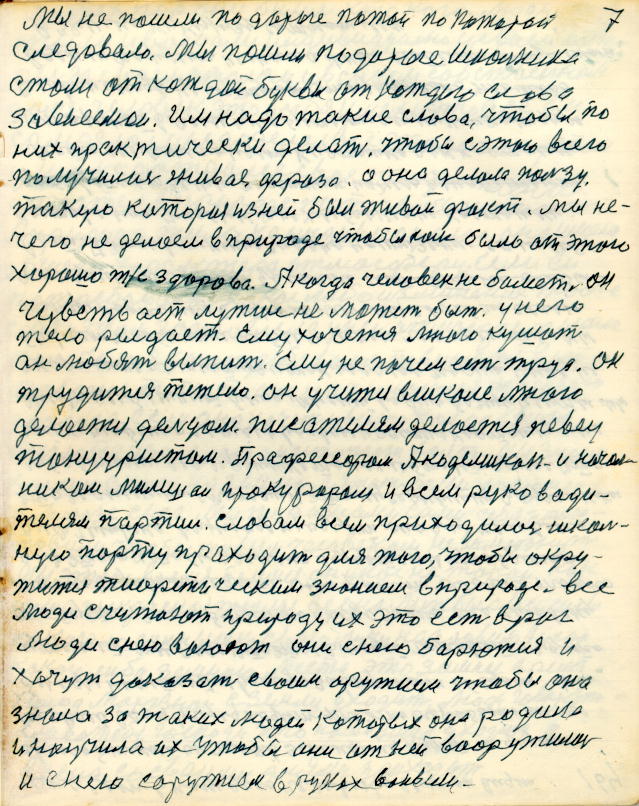 7
Мы не пошли по дороге по той по которой
следовало. Мы пошли по дороге школьника
стали от каждой буквы от каждого слова
зависемои. Им надо такие слова, чтобы по
них практически делат. чтобы с этого всего
получилися живая фраза. а она делала ползу.
такую которая из ней был живой факт. Мы не-
чего не делаем в природе чтобы нам было от этого
хорошо т/к здорова. А когда человек не болеет. он
чувствует лутше не может быт. у него
тело рыдает. Ему хочется много кушат
он любят выпит. Ему не почем ест труд. он
трудится тежело. он учится в школе много
делается делцом. писателям делается певец
танцуристом. Прафессором Академикам и начал-
ником милицаи прокурорам и всем руковади-
телям партии. словам всем приходилося школ-
ную парту праходит для того, чтобы окру-
жится тиоретическим знанием в природе. все
люди считают природу их это ест враг
люди с нею воюют они с нею барются и
хочут доказат своим оружием чтобы она
знала за таких людей которых она родила
и научила их чтобы они от ней вооружилис
и с нею с оружием в руках воивали.